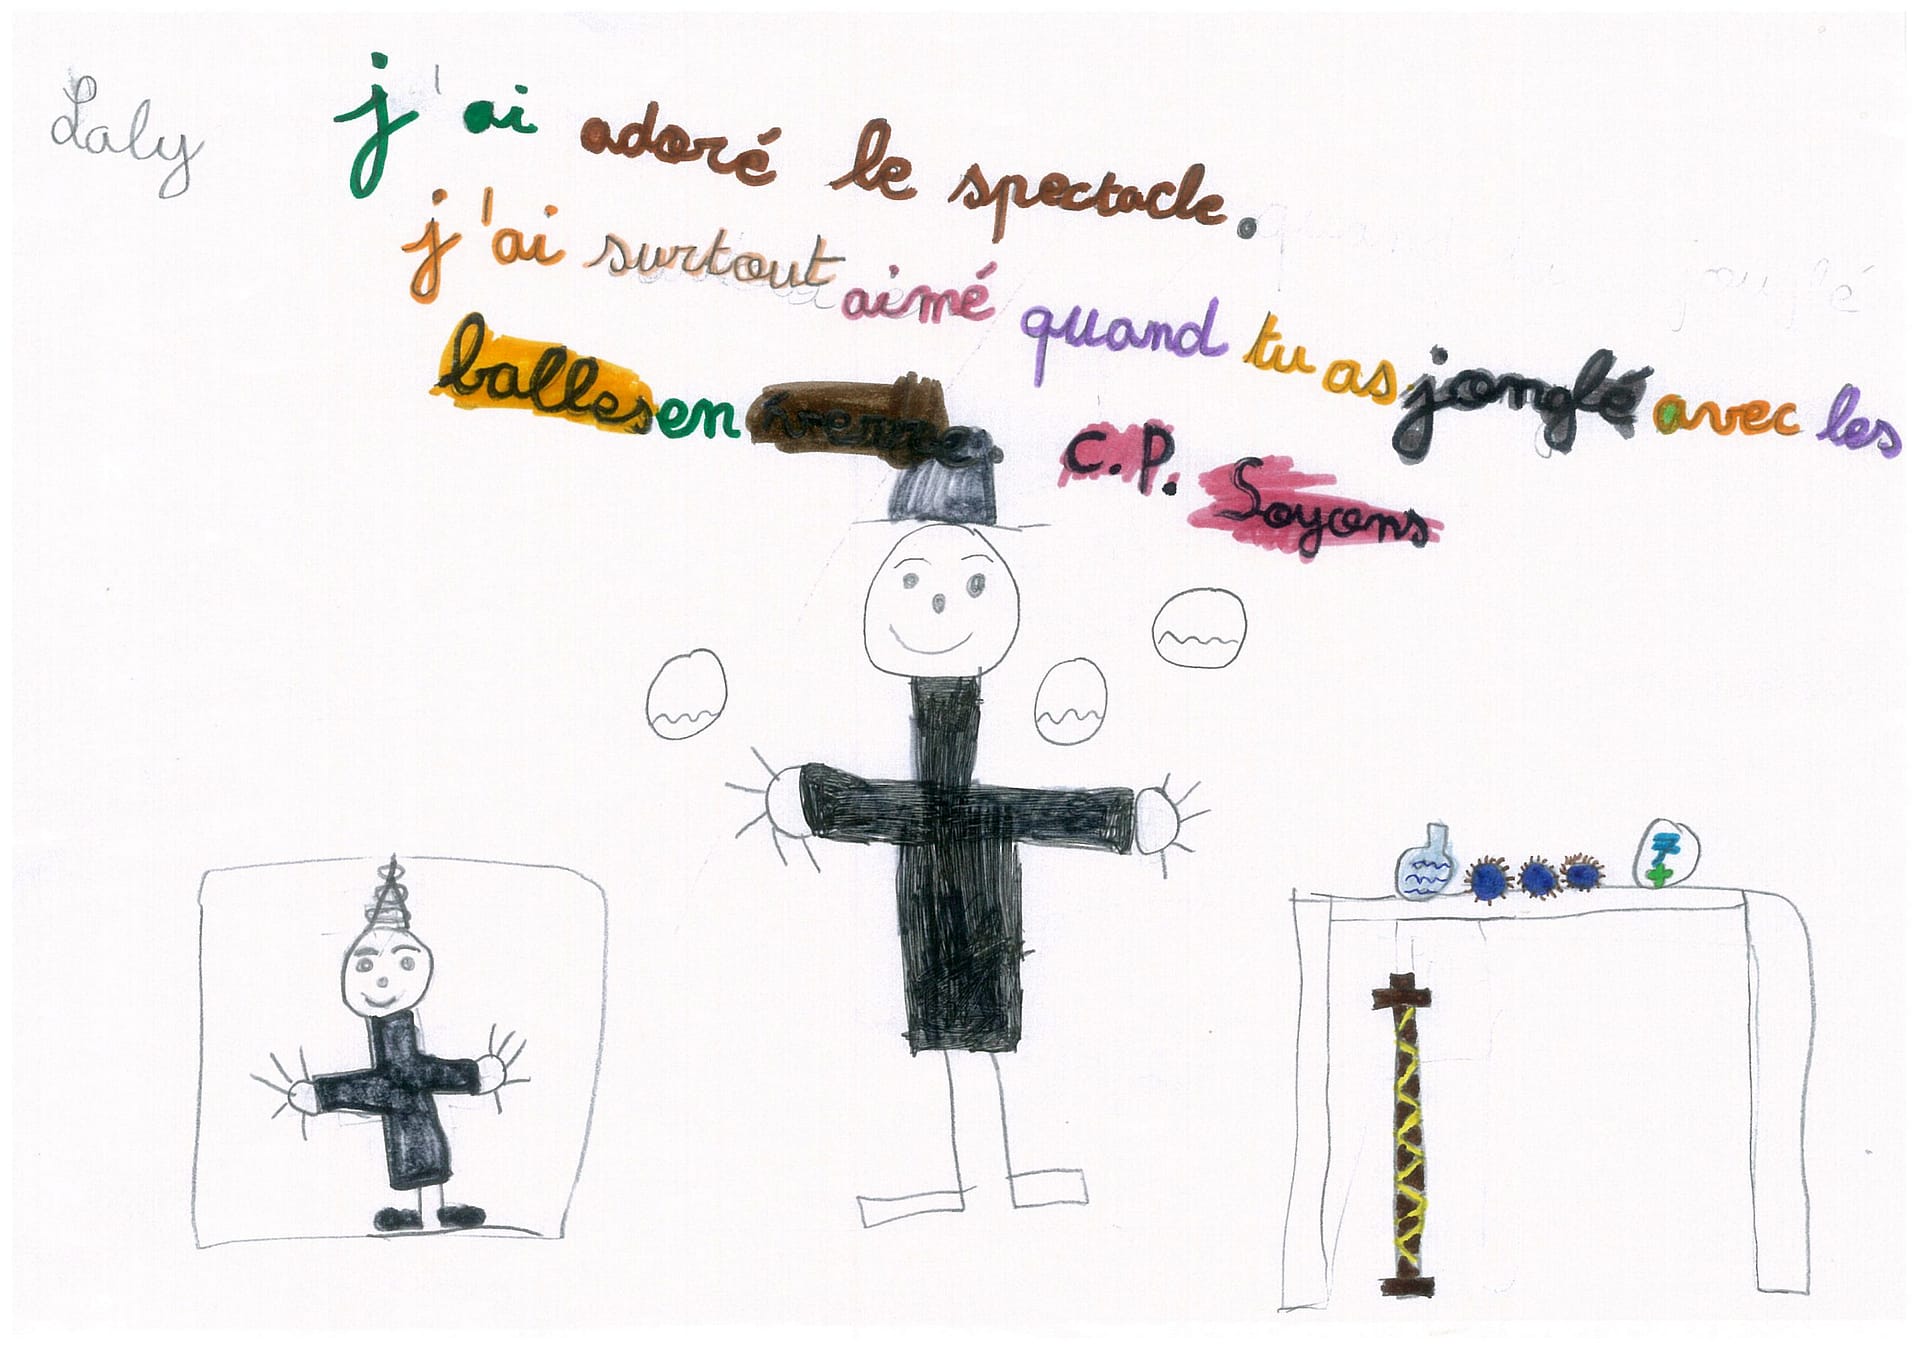 Laly
j'ai adoré le spectacle.
j'ai surtout aimé quand tu as jonglé avec les
balles en verre
C.P. Soyons